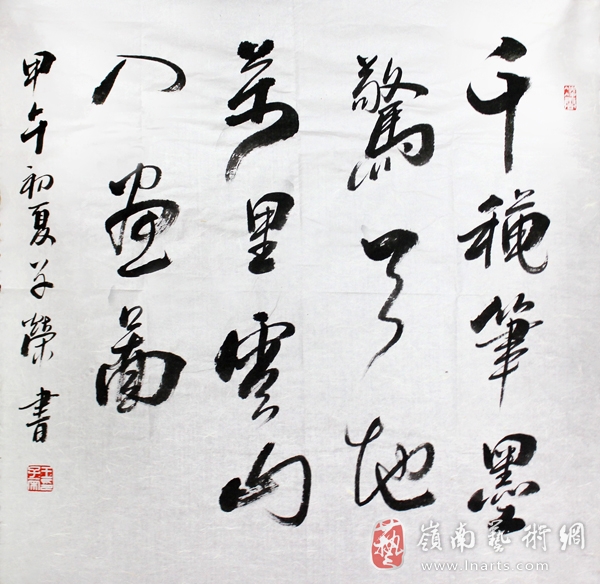 千種筆墨
驚天地
萬里雲山
入畫圖
甲午初夏子榮書
嶺南藝術網
www.lnarts.com